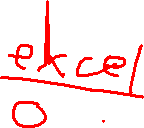 ekcel
0